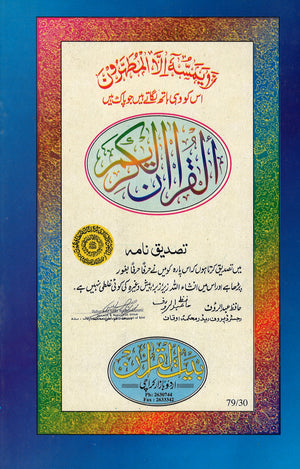 لَّا يَمَسُّهُ إِلَّا الْمُطَهَّرُونَ
اس کو وہی ہاتھ لگاتے ہیں جو پاک ہیں
القرآن الکریم
تصدیق نامہ
میں تصدیق کرتا ہوں کہ اس پارہ کو میں نے حرفاً حرفاً بغور
پڑھا ہے اور اس میں انشاء اللہ زیر، زبر، پیش وغیرہ کی کوئی غلطی نہیں ہے۔
حافظ عبدالرؤف
رجسٹرڈ پروف ریڈر محکمہ اوقاف
بیت القرآن
اردو بازار کراچی
Ph: 2630744
Fax : 2633342
79/30